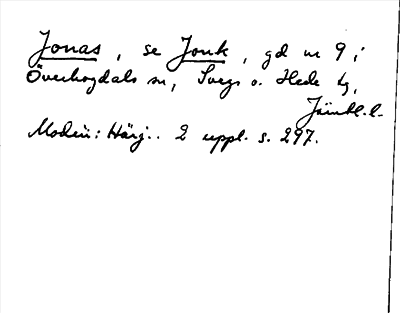 Jonas, se Jonk, gd nr 9 i
Överhogdals sn, Svegs o. Hede tg,
Jämtl. l.
Modin: Härj.. 2 uppl. s. 297.